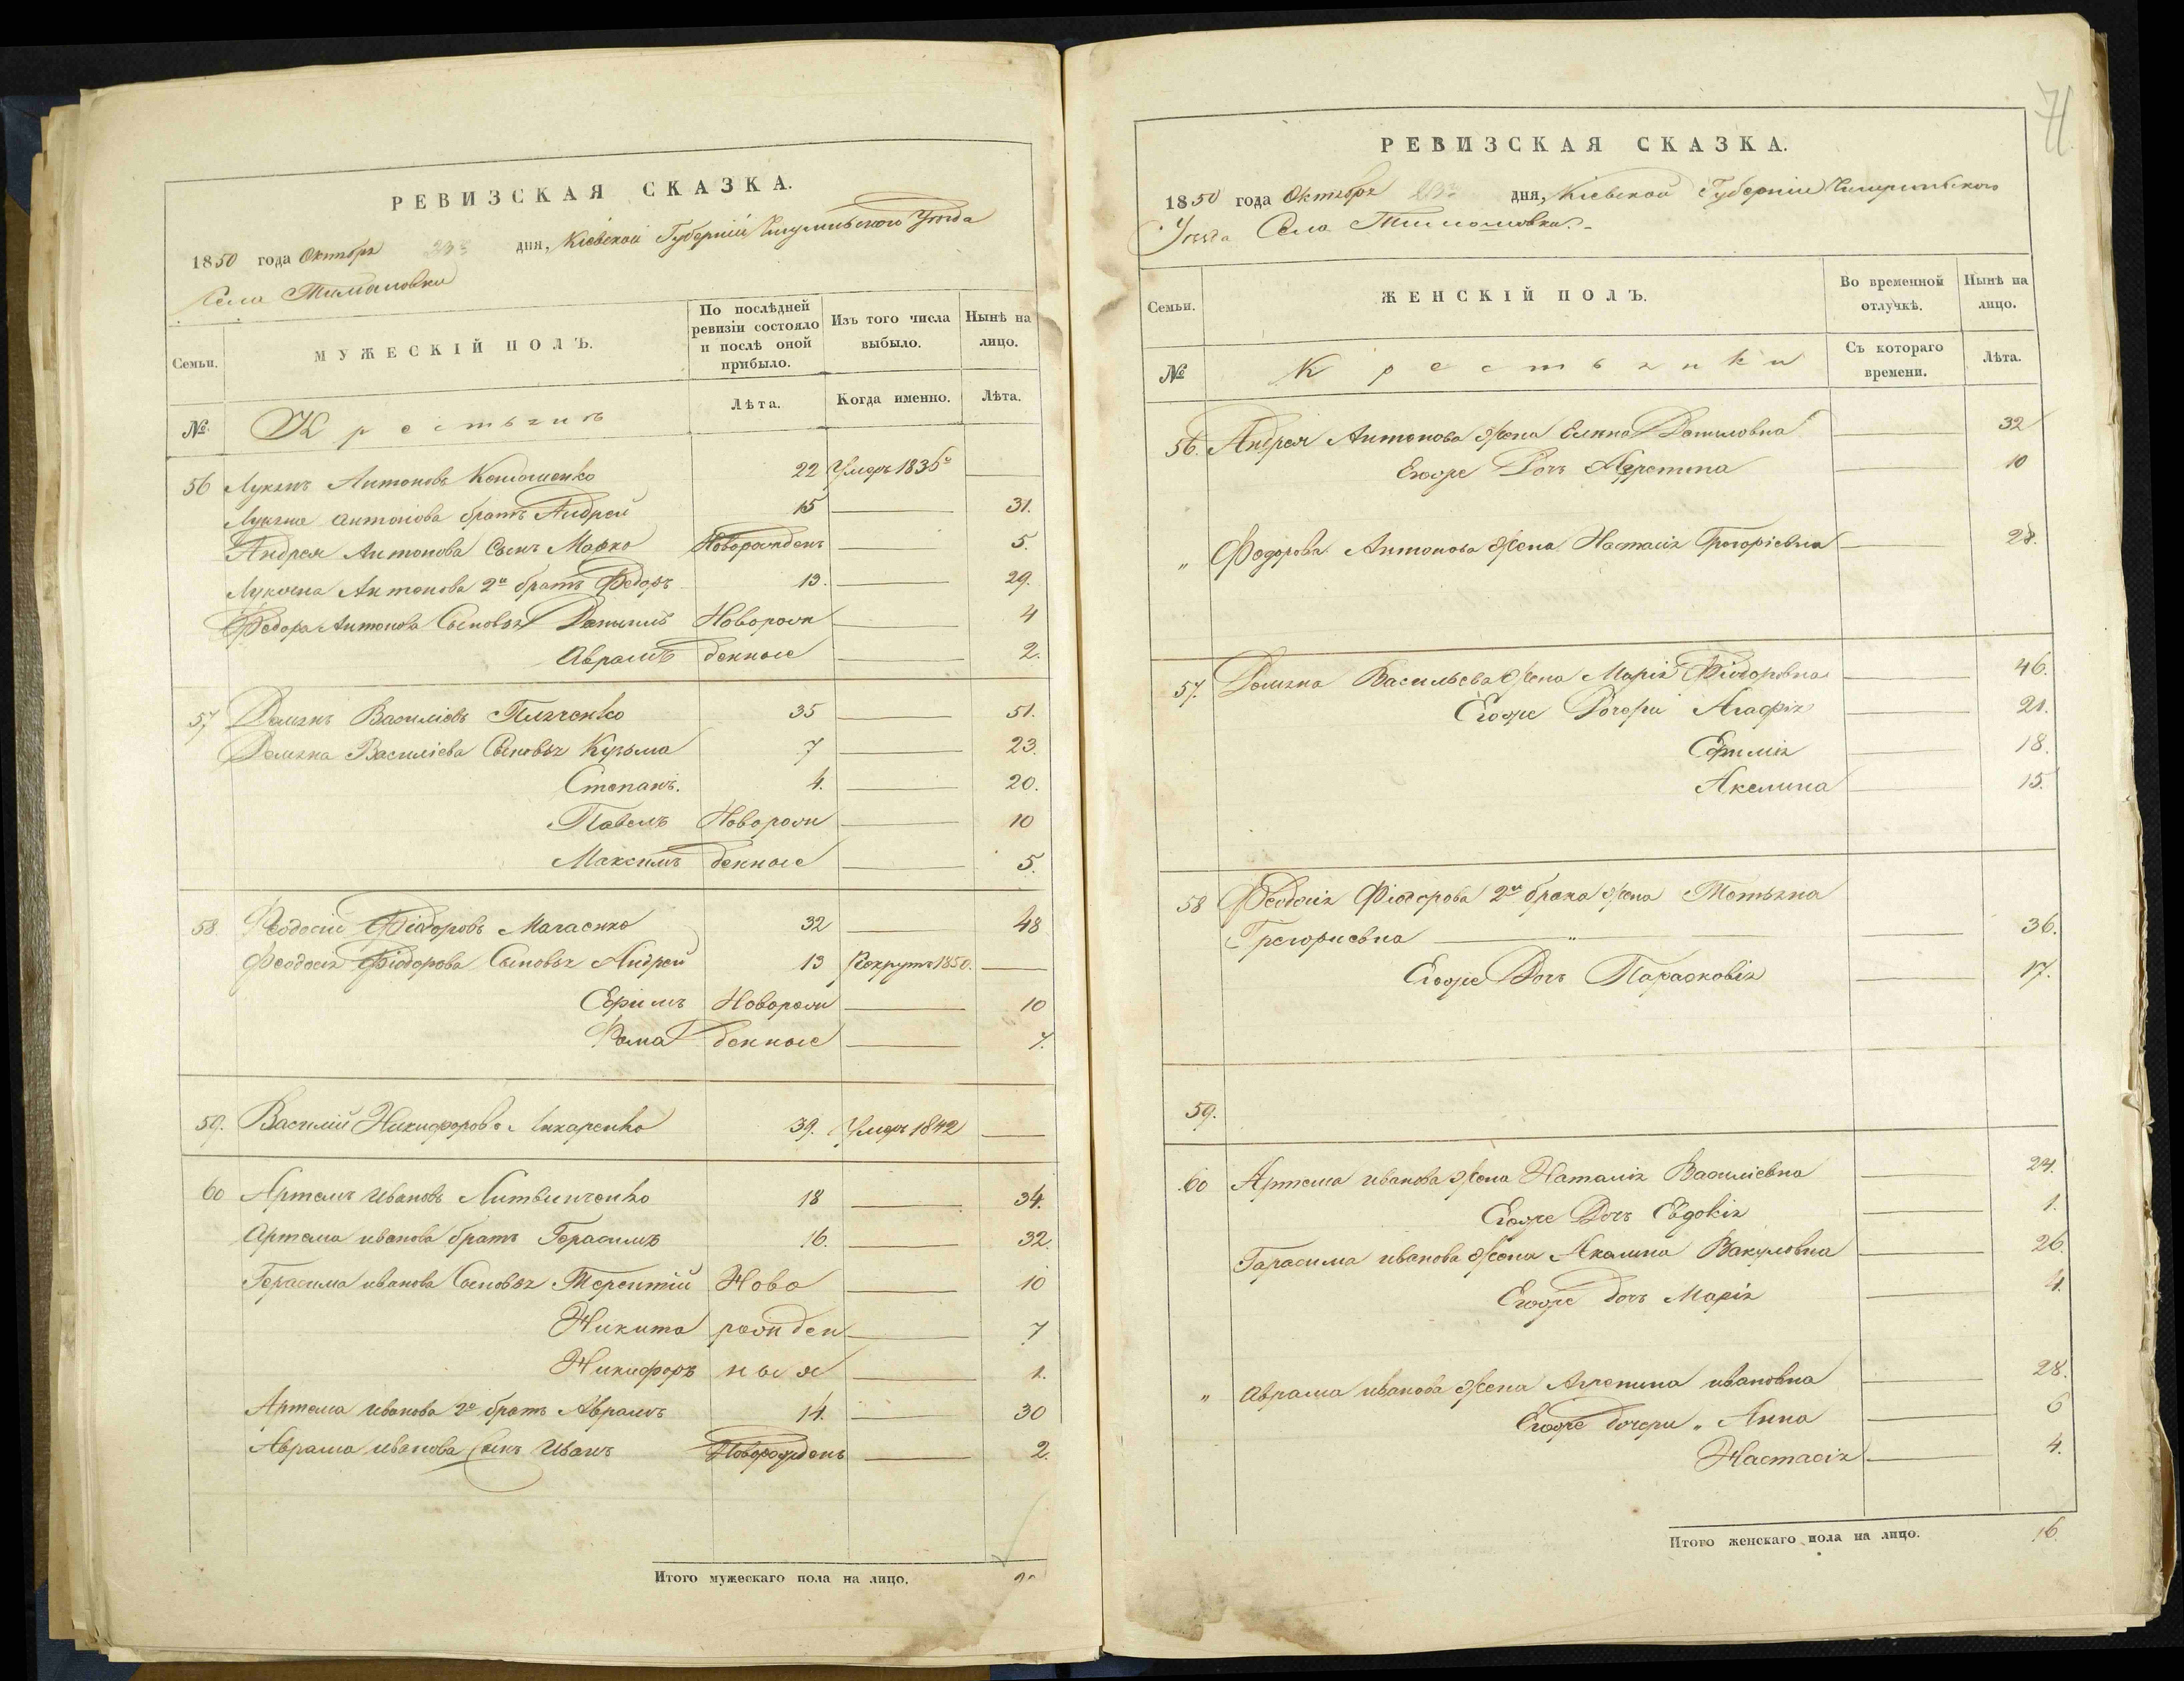 РЕВИЗСКАЯ СКАЗКА.
1850 года Октября дня, Кіевской Губерніи Чигиринского Уезда
Села Тимошовки
Семьи.
МУЖЕСКІЙ ПОЛЪ.
По послѣдней ревизіи состояло и послѣ оной прибыло.
Изъ того числа выбыло.
Нынѣ на лицо.
№
Крестьянъ
Лѣта.
Когда именно.
Лѣта.
56 Лукянъ Антоновъ 22 Умеръ 1836го
Лукяна Антонова братъ Андрей 15 31.
Андрея Антонова Сынъ Марко Новорожденъ 5.
Лукяна Антонова 2й братъ Федоръ 13. 29.
Федора Антонова Сыновья Данылъ Новорож 4
Аврамъ денные 2.
57 Демянъ Василіовъ 35 51.
Демяна Василіева Сыновья Кузьма 7 23.
Степанъ. 4. 20.
Павелъ Новорож 10
Максимъ денные 5.
58. Феодосій Фіодоровъ 32 48
Феодосія Фіодорова Сыновья Андрей 13 Рекрутъ 1850.
Ефимъ Новорож 10
Фома денные 7.
59. Василій Никифоровъ 39. Умеръ 1842
60 Артемъ Ивановъ Литвинченко 18 34.
Артема иванова братъ Герасимъ 16. 32.
Герасима иванова Сыновья Терентій Ново 10
Никита рожден 7
Никифоръ ныя 1.
Артема иванова 2й братъ Аврамъ 14. 30
Аврама иванова Сынъ Иванъ Новорожденъ 2.
Итого мужескаго пола на лицо.
71
РЕВИЗСКАЯ СКАЗКА.
1850 года Октября дня, Кіевской Губерніи Чигиринского
Уезда Села Тимошовки.
Семьи.
ЖЕНСКІЙ ПОЛЪ.
Во временной отлучкѣ.
Нынѣ на лицо.
№
Крестьянки
Съ котораго времени.
Лѣта.
56. Андрея Антонова жена Елена Даниловна 32
Егоже Дочь 10
„ Федорова Антонова жена Настасія Григоріевна 28.
57. Демяна Васильева жена Марія Фіодоровна 46.
Егоже Дочери Агафія 21.
Ефимія 18.
Акелина 15.
58 Феодосія Фіодорова 2го брака жена Татьяна
Грегориевна 36.
Егоже Дочь Парасковія 17.
59.
60 Артема иванова жена Наталія Василіевна 24.
Егоже Дочь Евдокія 1.
Гарасима иванова жена Акелина Вакуловна 26.
Егоже дочь Марія 4.
„ Аврама иванова жена Агрепина ивановна 28.
Егоже дочери „ Анна 6
Настасія 4.
Итого женскаго пола на лицо. 16.